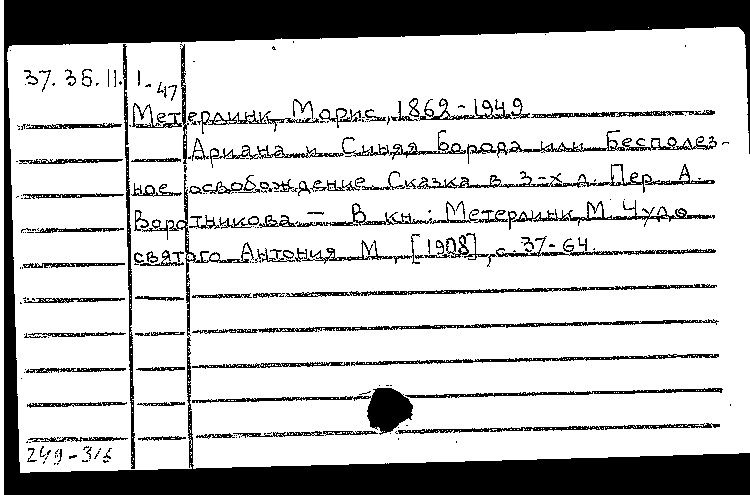 37.36.11.1-47
Метерлинк, Морис, 1862-1949
Ариана и Синяя борода или Бесполез-
ное освобождение Сказка в 3-х д. Пер. А.
Воротникова — В кн.: Метерлинк, М. Чудо
святого Антония М., [1908], с. 37-64.
249-316